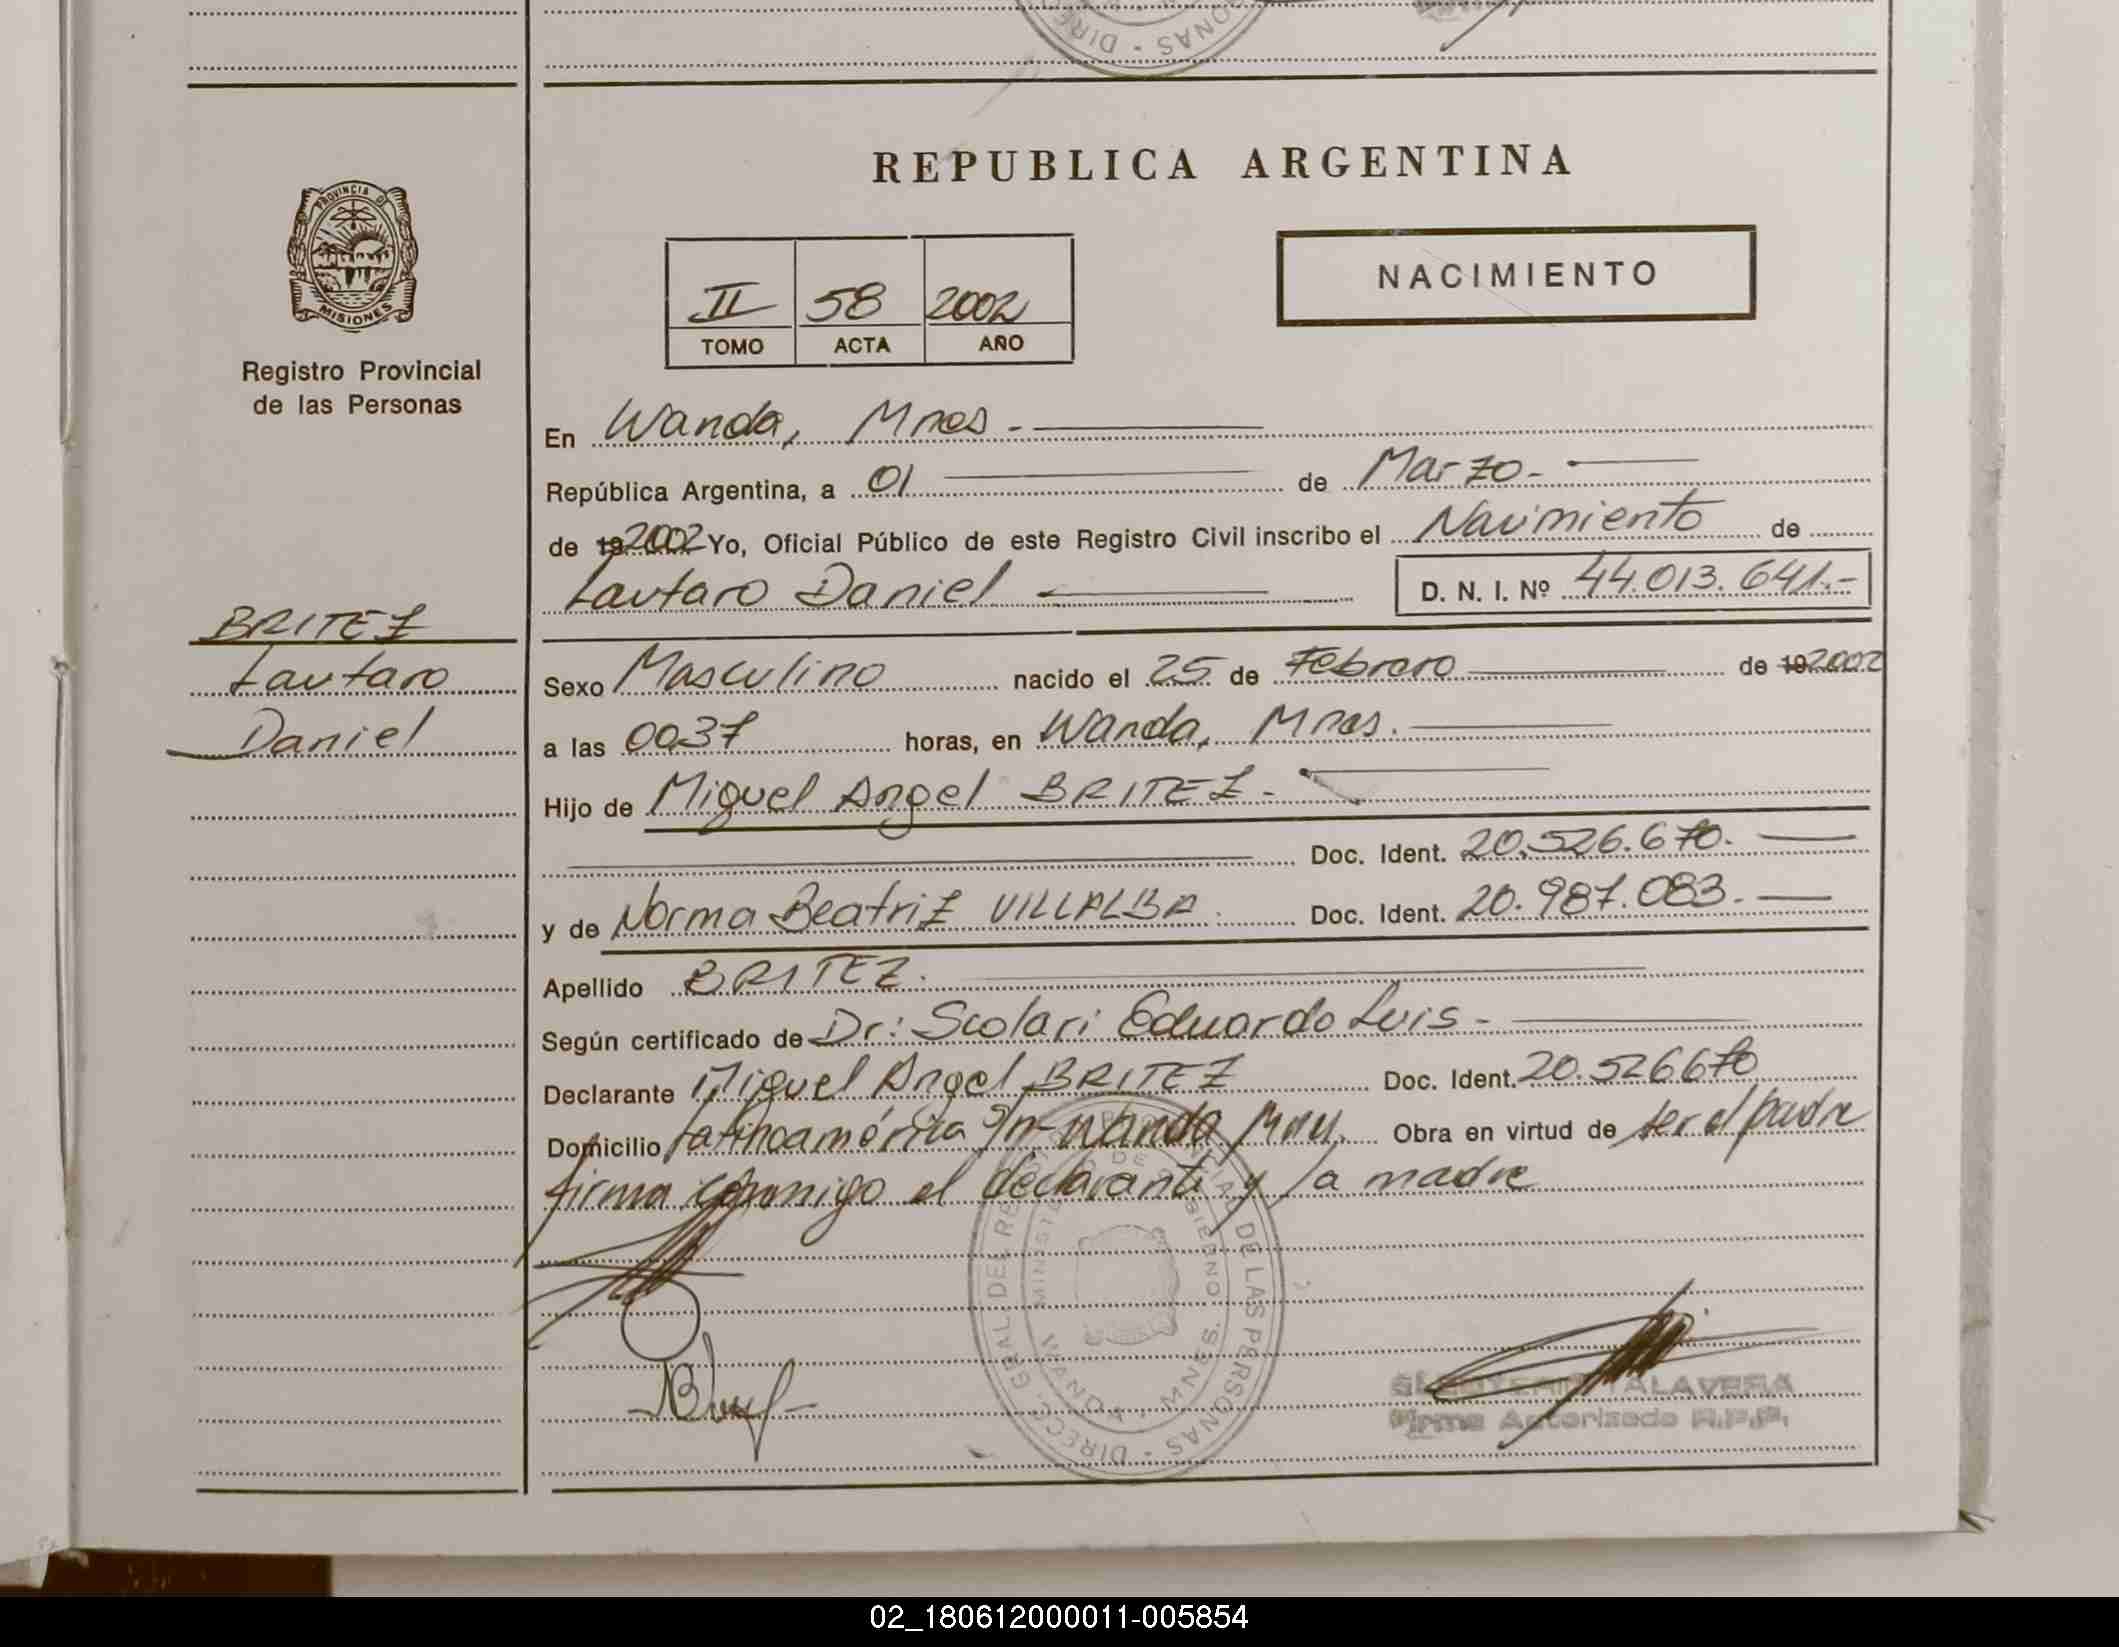 REPUBLICA ARGENTINA
PROVINCIA DE
MISIONES
Registro Provincial
de las Personas
NACIMIENTO
II 58 2002
TOMO ACTA AÑO
En Wanda, Mnes.-
República Argentina, a 01 de Marzo.-
de 19 2002 Yo, Oficial Público de este Registro Civil inscribo el Nacimiento de
Lautaro Daniel D. N. I. Nº 44.013.641.-
BRITEZ
Lautaro
Daniel
Sexo Masculino nacido el 25 de Febrero de 19 2002
a las 0037 horas, en Wanda, Mnes.
Hijo de Miguel Angel BRITEZ.-
Doc. Ident. 20.526.670.
y de Norma Beatriz VILLALBA. Doc. Ident. 20.987.083.
Apellido BRITEZ.
Según certificado de Dr: Scolari Eduardo Luis-
Declarante Miguel Angel BRITEZ Doc. Ident. 20.526670
Domicilio Latinoamérica S/n- Wanda Mnes. Obra en virtud de ser el padre
firma conmigo el declarante y la madre
DIRECC. GRAL DEL REGISTRO PROVINCIAL DE LAS PERSONAS
MINISTERIO DE GOBIERNO
WANDA - MNES.
TALAVERA
Firma Autorizada R.P.P.
02_180612000011-005854